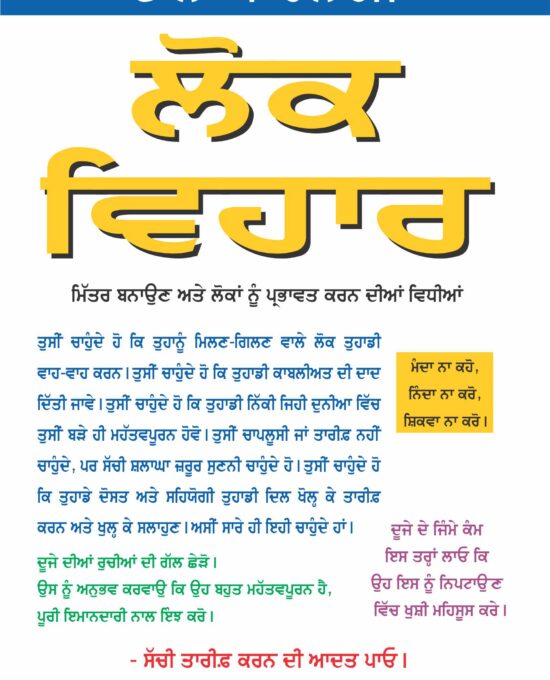 ਲੋਕ
ਵਿਹਾਰ
ਮਿੱਤਰ ਬਨਾਉਣ ਅਤੇ ਲੋਕਾਂ ਨੂੰ ਪ੍ਰਭਾਵਤ ਕਰਨ ਦੀਆਂ ਵਿਧੀਆਂ
ਤੁਸੀਂ ਚਾਹੁੰਦੇ ਹੋ ਕਿ ਤੁਹਾਨੂੰ ਮਿਲਣ-ਗਿਲਣ ਵਾਲੇ ਲੋਕ ਤੁਹਾਡੀ
ਵਾਹ-ਵਾਹ ਕਰਨ। ਤੁਸੀਂ ਚਾਹੁੰਦੇ ਹੋ ਕਿ ਤੁਹਾਡੀ ਕਾਬਲੀਅਤ ਦੀ ਦਾਦ
ਦਿੱਤੀ ਜਾਵੇ। ਤੁਸੀਂ ਚਾਹੁੰਦੇ ਹੋ ਕਿ ਤੁਹਾਡੀ ਨਿੱਕੀ ਜਿਹੀ ਦੁਨੀਆ ਵਿੱਚ
ਤੁਸੀਂ ਬੜੇ ਹੀ ਮਹੱਤਵਪੂਰਨ ਹੋਵੋ। ਤੁਸੀਂ ਚਾਪਲੂਸੀ ਜਾਂ ਤਾਰੀਫ਼ ਨਹੀਂ
ਚਾਹੁੰਦੇ, ਪਰ ਸੱਚੀ ਸ਼ਲਾਘਾ ਜ਼ਰੂਰ ਸੁਣਨੀ ਚਾਹੁੰਦੇ ਹੋ। ਤੁਸੀਂ ਚਾਹੁੰਦੇ ਹੋ
ਕਿ ਤੁਹਾਡੇ ਦੋਸਤ ਅਤੇ ਸਹਿਯੋਗੀ ਤੁਹਾਡੀ ਦਿਲ ਖੋਲ੍ਹ ਕੇ ਤਾਰੀਫ਼
ਕਰਨ ਅਤੇ ਖੁਲ੍ਹ ਕੇ ਸਲਾਹੁਣ। ਅਸੀਂ ਸਾਰੇ ਹੀ ਇਹੀ ਚਾਹੁੰਦੇ ਹਾਂ।
ਮੰਦਾ ਨਾ ਕਹੋ,
ਨਿੰਦਾ ਨਾ ਕਰੋ,
ਸ਼ਿਕਵਾ ਨਾ ਕਰੋ।
ਦੂਜੇ ਦੀਆਂ ਰੁਚੀਆਂ ਦੀ ਗੱਲ ਛੇੜੋ।
ਉਸ ਨੂੰ ਅਨੁਭਵ ਕਰਵਾਉ ਕਿ ਉਹ ਬਹੁਤ ਮਹੱਤਵਪੂਰਨ ਹੈ,
ਪੂਰੀ ਇਮਾਨਦਾਰੀ ਨਾਲ ਇੰਝ ਕਰੋ।
ਦੂਜੇ ਦੇ ਜਿੰਮੇ ਕੰਮ
ਇਸ ਤਰ੍ਹਾਂ ਲਾਓ ਕਿ
ਉਹ ਇਸ ਨੂੰ ਨਿਪਟਾਉਣ
ਵਿੱਚ ਖੁਸ਼ੀ ਮਹਿਸੂਸ ਕਰੇ।
- ਸੱਚੀ ਤਾਰੀਫ਼ ਕਰਨ ਦੀ ਆਦਤ ਪਾਓ।